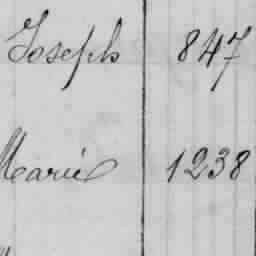 Joseph 847
Marie 1238